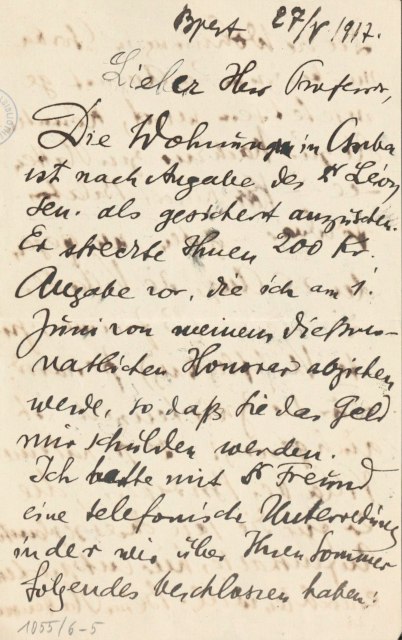 Bpest 27/V 1917.
Lieber Herr Professor,
Die Wohnung in Csorba
ist nach Angabe des Dr Lévy
sen. als gesichert anzusehen.
Er streckte Ihnen 200 Kr.
Angabe vor, die ich am 1.
Juni von meinem dießmo-
natlichen Honorar abziehen
werde, so daß Sie das Geld
mir schulden werden.
Ich hatte mit Dr Freund
eine telefonische Unterredung
in der wir über Ihren Sommer
folgendes beschlossen haben:
1055/6-5